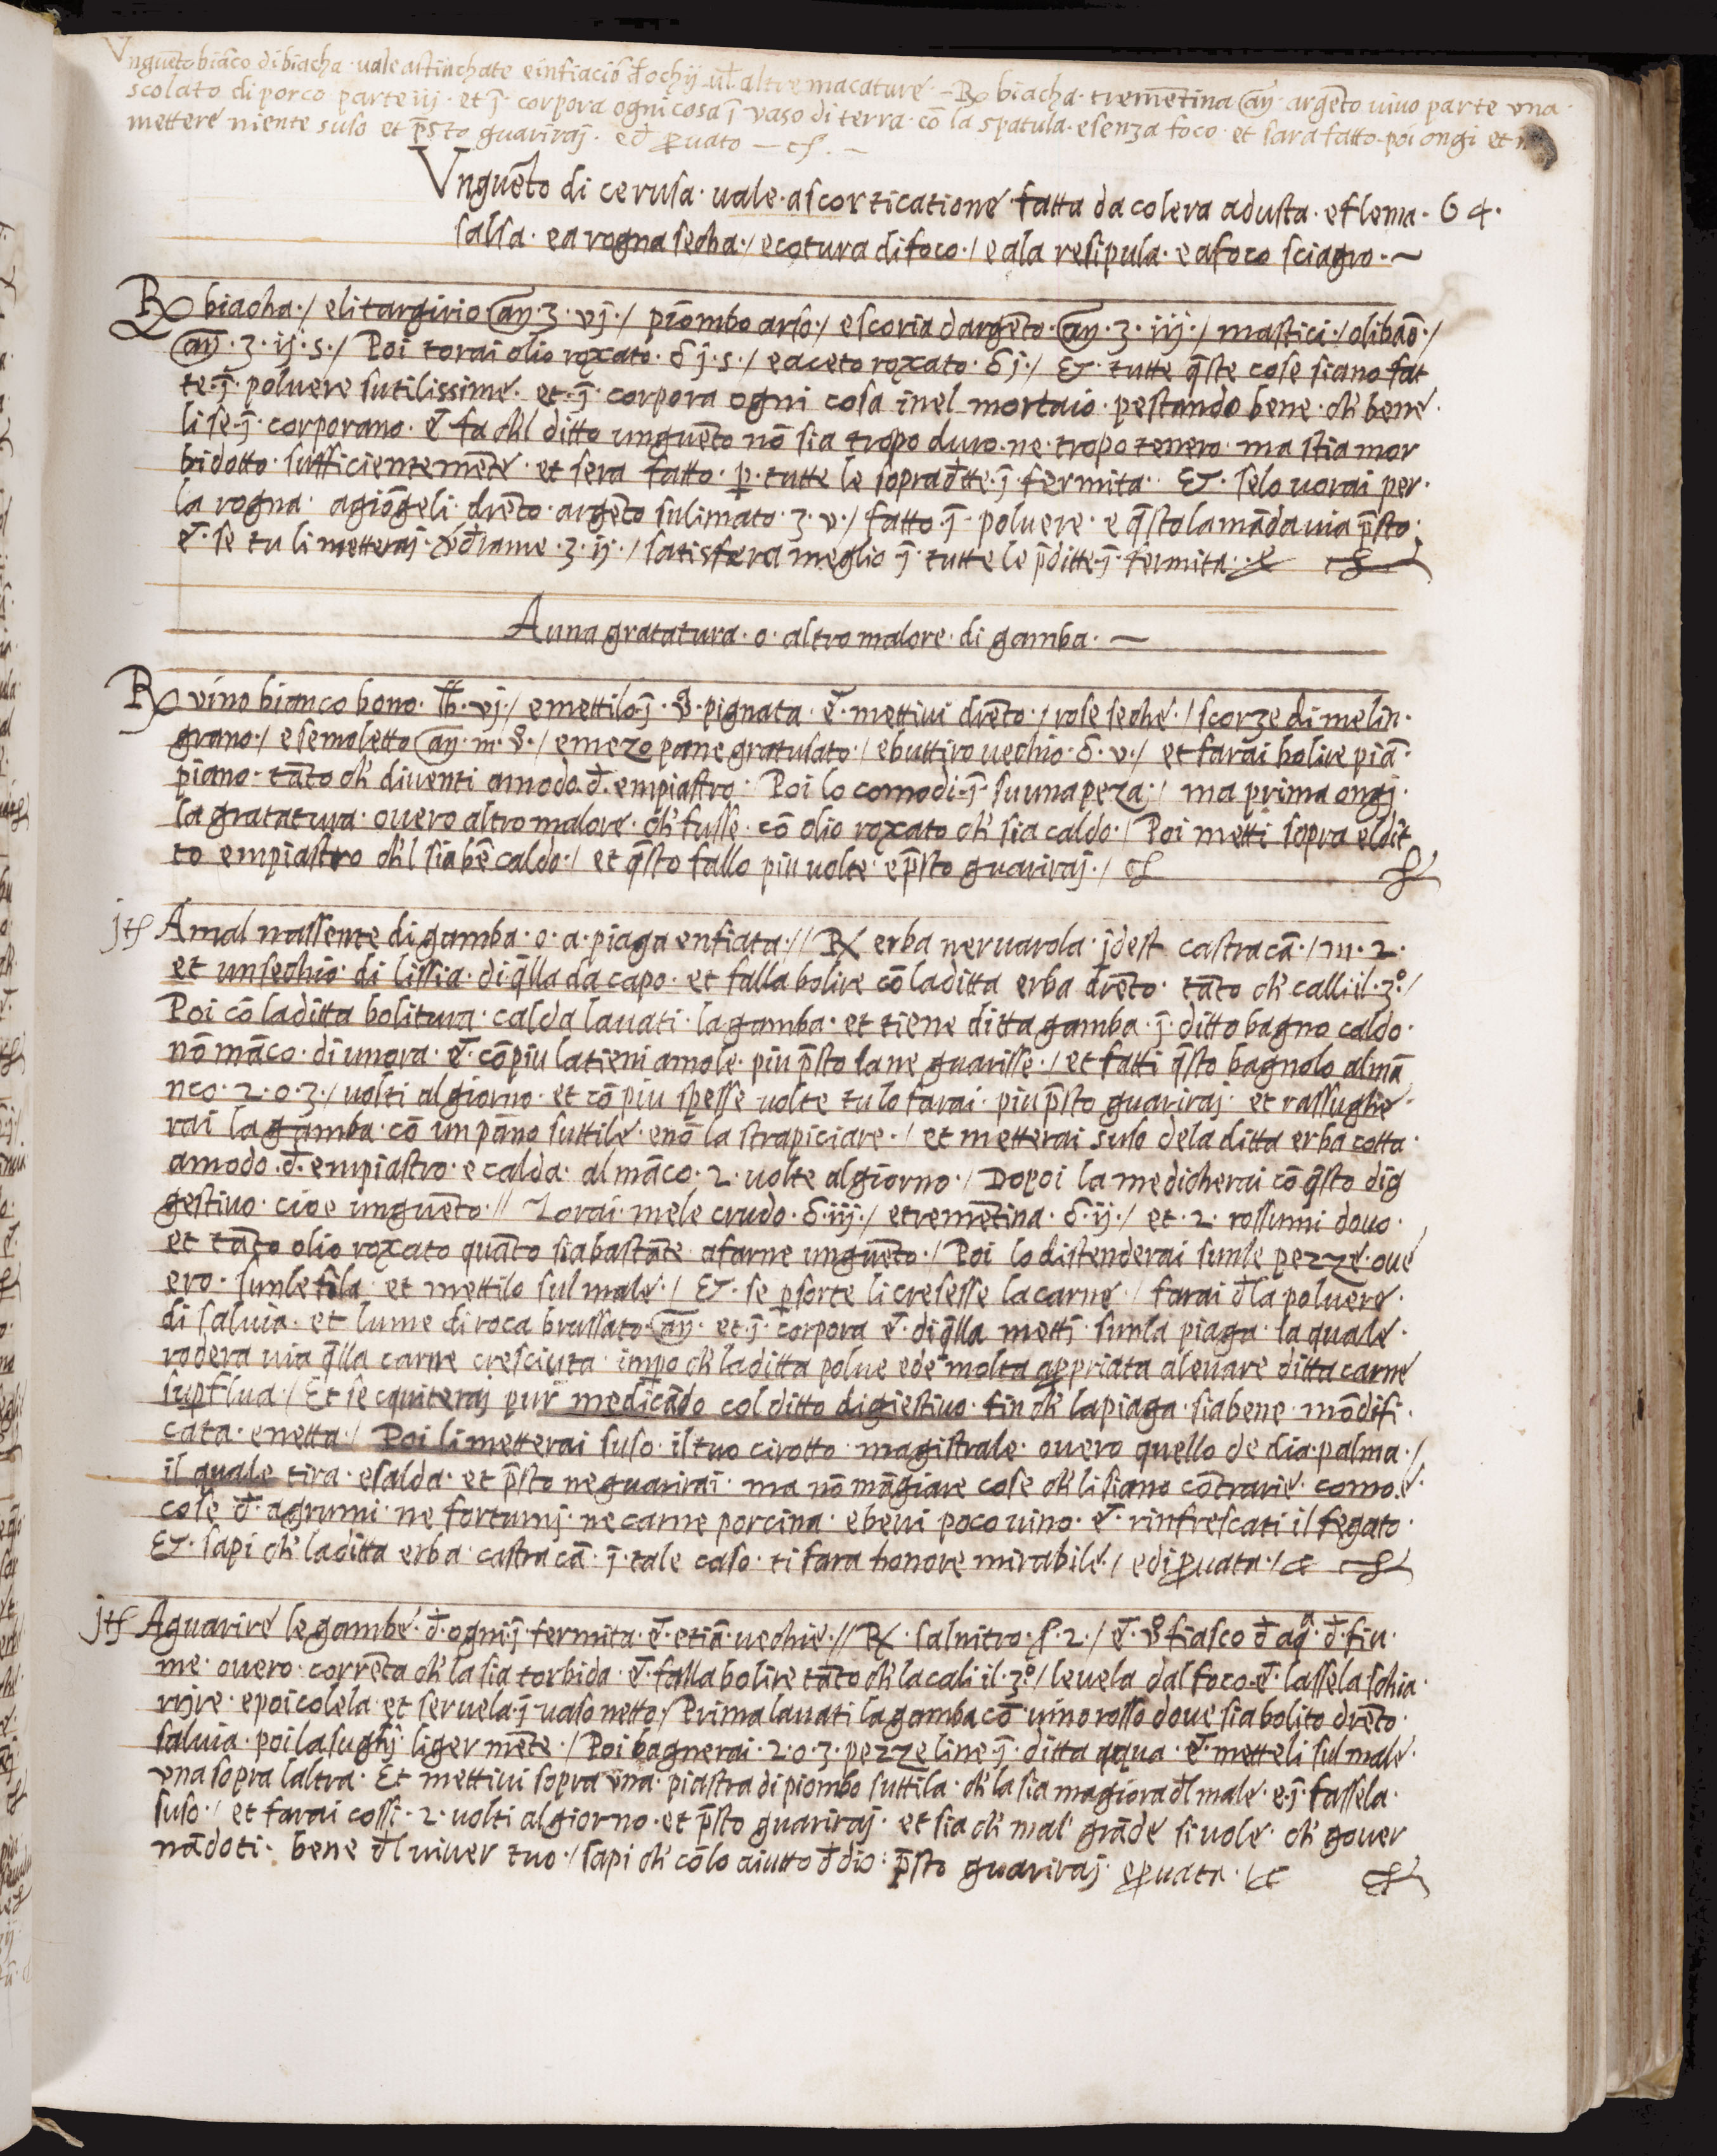 Vnguēto biāco di biacha · uale a stinchate e infiaciō đ ochij · ul altre macature · – ℞ biacha · tremētina añ · argēto uiuo parte vna ·
scolato di porco parte iij · et j̄ · corpora ogni cosa j̄ vaso di terra · cō la spatula · e senza foco · et sara fatto · poi ongi et
mettere niente suso et p̄sto guariraj · ed pruato
Vnguēto di cerusa · uale · a scorticatione fatta da colera adusta · e flema · 64 ·
salsa · e a rogna secha · / e cotura di foco · / e ala resipula · e a foco sciagro · ~
℞ biacha · / e litargirio añ ʒ · vj · / piombo arso · / e scoria d argēto · añ · ʒ · iij · / mastici · / olibaō · /
añ · ʒ · ij · s · / Poi torai olio roxato · ʒ̄ j · s · / e aceto roxato · ʒ̄ j · / & · tutte q̄ste cose siano fat
te · j̄ · poluere sutilissime · et · j̄ · corpora ogni cosa inel mortaio · pestando bene · ch' bene ·
li se · j̄ · corporano · & fa ch'l ditto unguēto nō sia tropo duro · ne · tropo tenero · ma stia mor
bidotto · sufficientemēte · et sera fatto · p · tutte le sopradtte · j̄ · fermita · & · se lo uorai per ·
la rogna · agiōgeli · drēto · argēto sulimato · ʒ · v · / fatto · j̄ · poluere · e q̄sto la māda uia p̄sto ·
& · se tu li metteraj · đ rame · ʒ · ij · / satisfara meglio j̄ · tutte le p̄ditte · j̄ · fermita ·
A una gratatura · o · altro malore · di gamba · ~
℞ vino bianco bono · lb · vj · / e mettilo · j̄ · pignata · & · mettiui drēto · / rose seche · / scorze di melin ·
grano · / e semoletto añ · m · / e mezo pane gratusato · / e buttiro uechio · ʒ̄ · v · / et farai bolire piā ·
piano · tāto ch' diuenti a modo · đ · empiastro · Poi lo comodi · j̄ · su una peza · / ma prima ongj ·
la gratatura · ouero altro malore · ch' fusse · cō olio roxato ch' sia caldo · / Poi metti sopra el dit
to empiastro ch'l sia bē caldo · / et q̄sto fallo piu uolte · e p̄sto guariraj · /
jtē A mal nassente di gamba · o · a · piaga enfiata · // ℞ erba neruarola · jdest castracā · / m · 2 ·
et un sechio · di lissia · di q̄lla da capo · et falla bolire cō la ditta erba drēto · tāto ch' calli il · 3° · /
Poi cō la ditta bolitura · calda lauati · la gamba · et tiene ditta gamba · j̄ · ditto bagno caldo ·
nō māco · di unora · & · cō piu la tieni a mole · piu p̄sto la ne guarisse · / et fatti q̄sto bagnolo al mā
nco · 2 · o · 3 · / uolti al giorno · et cō piu spesse uolte tu lo farai · piu p̄sto guariraj · et rassughe ·
rai la gamba · cō un pāno suttile · e nō la strapiciare · / et metterai suso de la ditta erba cotta ·
a modo · đ · empiastro · e calda · al māco · 2 · uolte al giorno · / Dopoi la medicherai cō q̄sto dig
gestiuo · cioe unguēto · // Torai · mele crudo · ʒ̄ · iij · / e tremētina · ʒ̄ · ij · / et · 2 · rossumi d ouo ·
et tāto olio roxato quāto sia bastāte a farne unguēto · / Poi lo distenderai su n le pezze · oue
ero · su n le fila · et mettilo sul male · / & · se p sorte li cresesse la carne · / farai đ la poluere ·
di saluia · et lume di roca brussato · añ · et · j̄ · corpora & · di q̄lla metti su n la piaga · la quale ·
rodera uia q̄lla carne cresciuta · imp̄o ch' la ditta polue ede molta appriata a leuare ditta carne
supflua · / Et se quiteraj pur medicādo col ditto digiestiuo · fin ch' la piaga · sia bene · mōdifi ·
cata · e netta · / Poi li metterai suso · il tuo cirotto · magistrale · ouero quello de dia · palma · /
il quale tira · e salda · et p̄sto ne guarirai · ma nō māgiare cose ch' li siano cōtrarie · como · e ·
cose đ · agrumi · ne fortumj · ne carne porcina · e beui poco uino · & · rinfrescati il fegato ·
& · sapi ch' la ditta erba · castracā · j̄ · tale caso · ti fara honore mirabile · / edi pruata · /
jtē A guarire le gambe · đ · ogni j̄ · fermita · & · etiā · uechie · // ℞ · salnitro · 2 · / & · fiasco đ aqa · đ · fiu ·
me · ouero · corrēta ch' la sia torbida · & · falla bolire tāto ch' la cali il · 3° · / leuela dal foco · & · lassela schia ·
rijre · e poi colela · et seruela · j̄ · uaso netto · / Prima lauati la gamba cō · uino rosso doue sia bolito drēto ·
saluia · poi la sughj · ligermēte · / Poi bagnerai · 2 · o · 3 · pezze line · j̄ · ditta aqua · & · metteli sul male ·
vna sopra laltra · Et mettiui sopra una · piastra di piombo suttila · ch' la sia magiora đl male · e · j̄ · fassela ·
suso · / et farai cossi · 2 · uolti al giorno · et p̄sto guariraj · et sia ch' mal' grāde si uole · ch' gouer
nādoti · bene đl uiuer tuo · / sapi ch' cō lo aiutto đ dio · p̄sto guariraj · e pruata ·